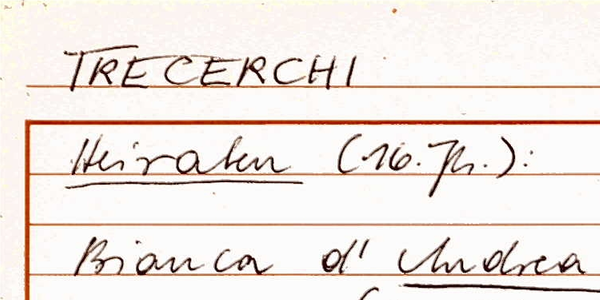 TRECERCHI
Heiraten (16. Jh.):
Bianca d' Andrea